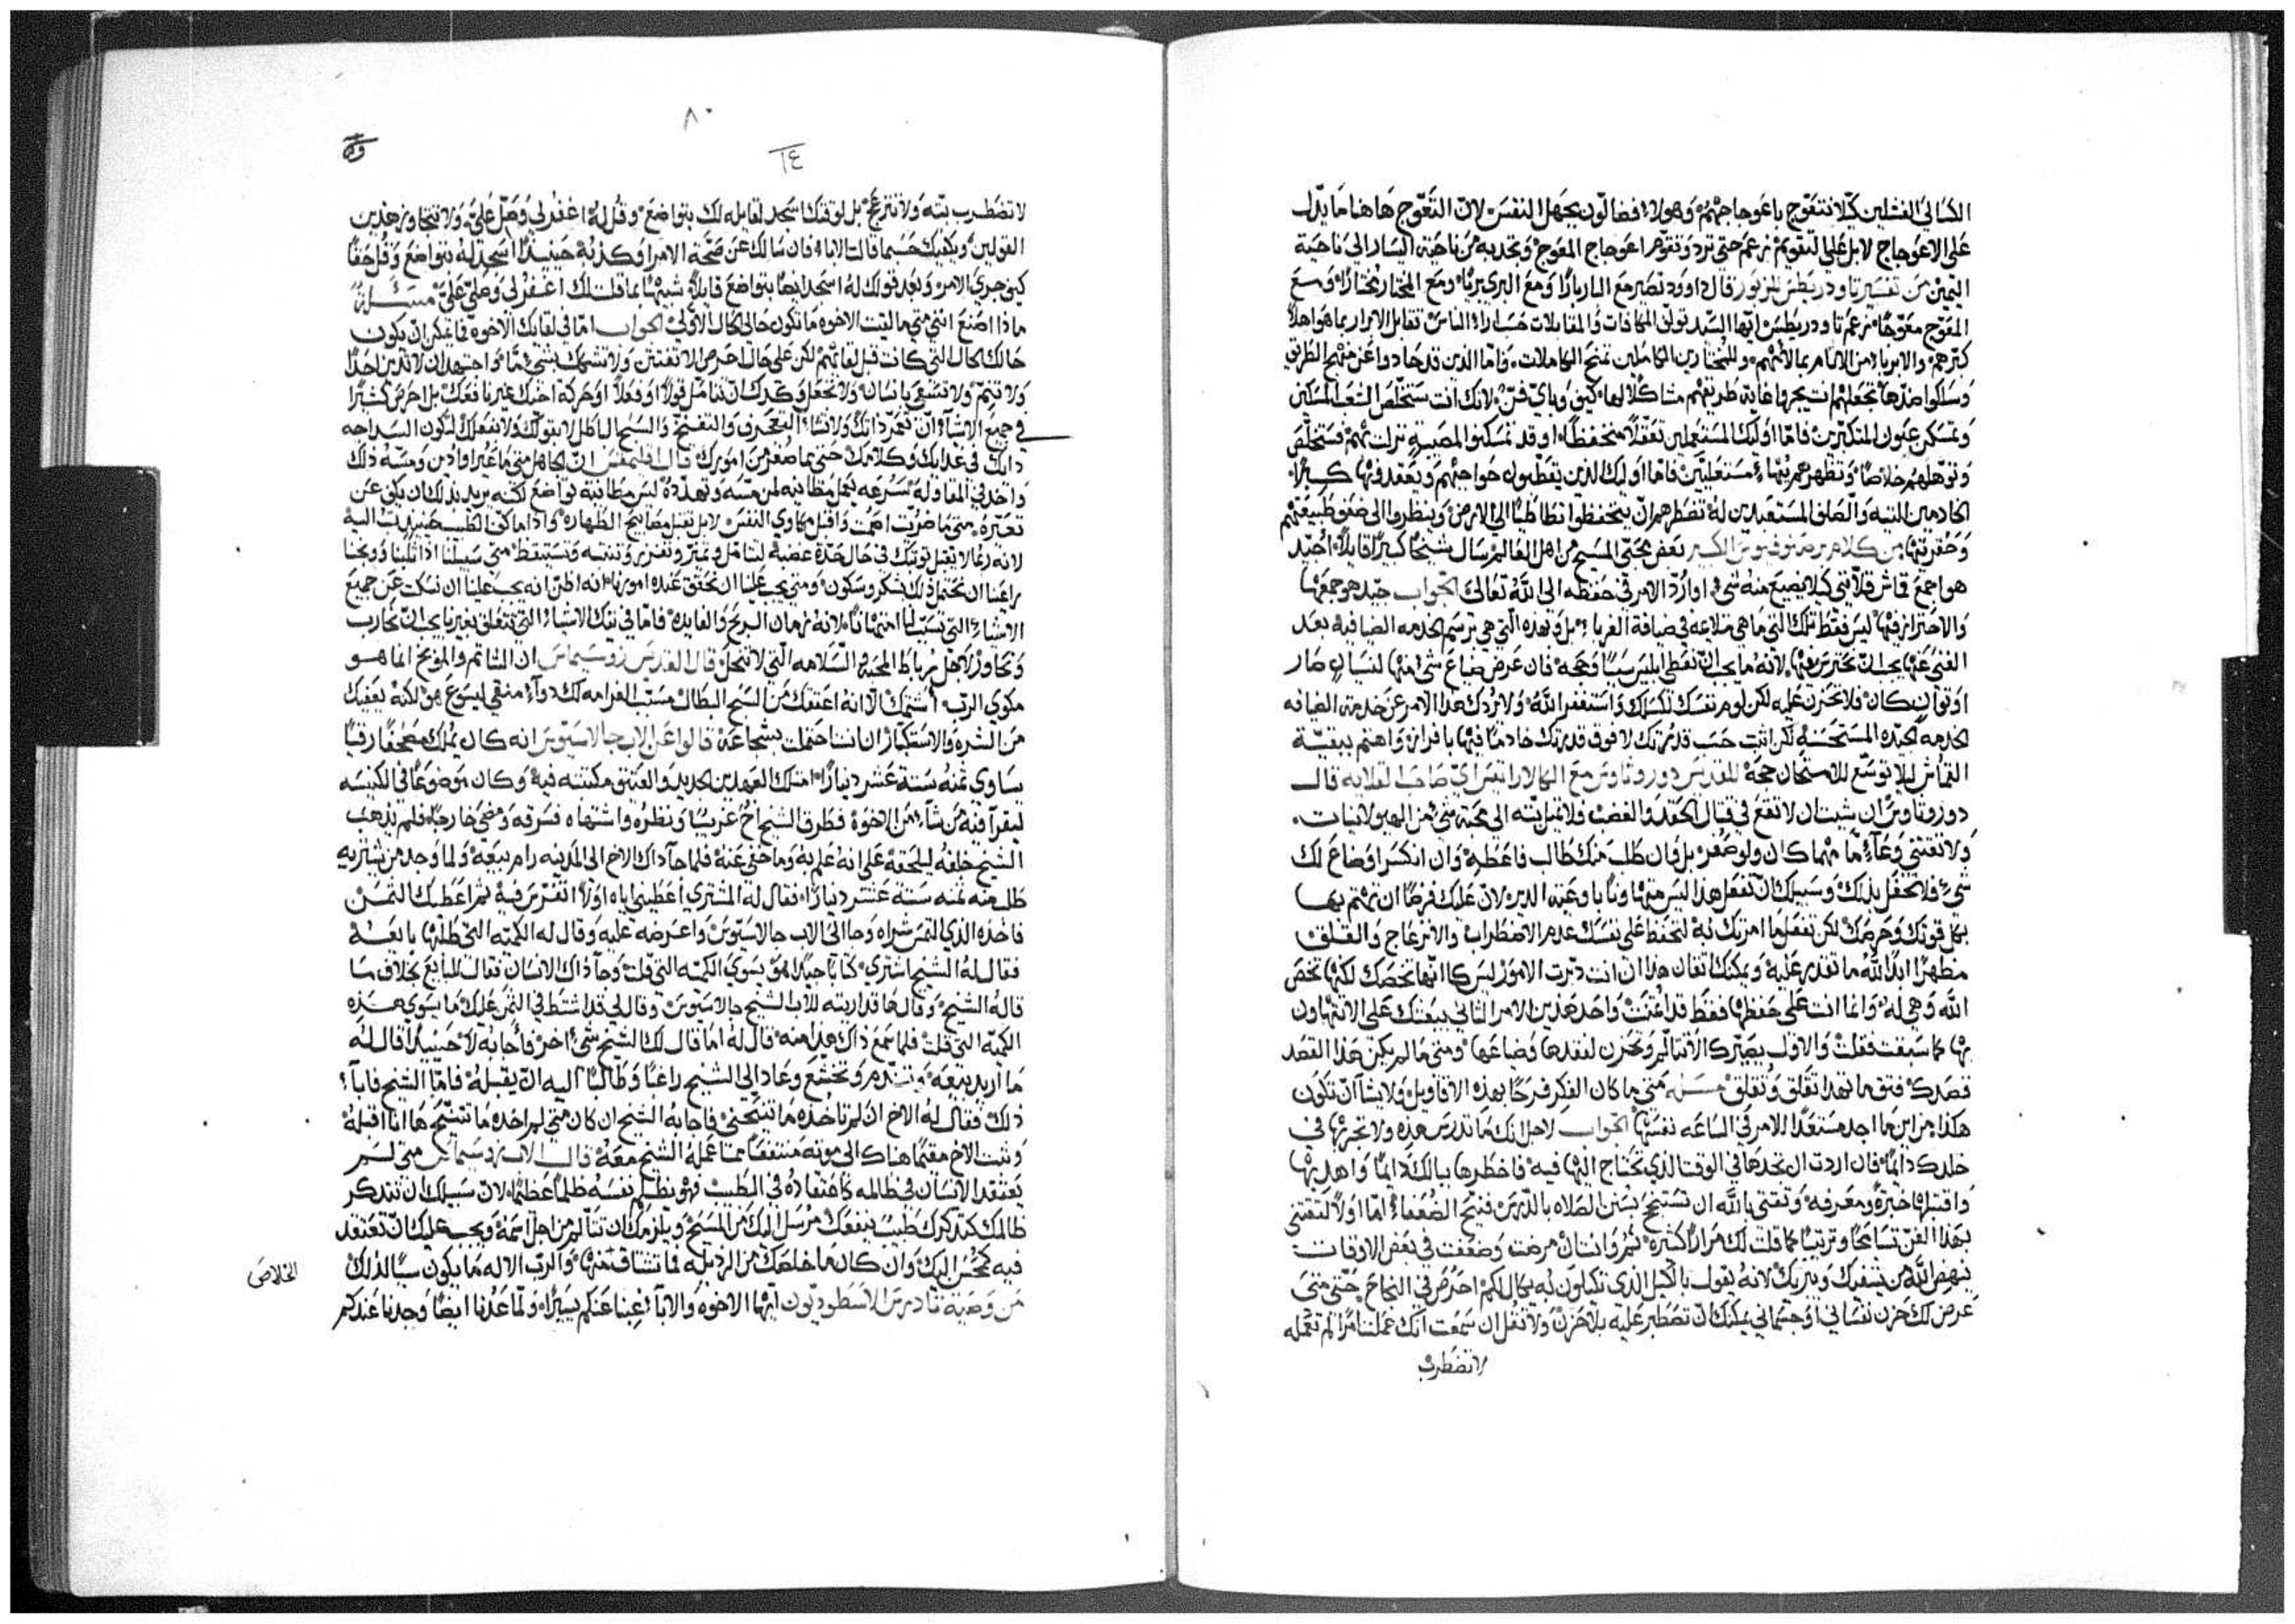 الكسالى الفشلين كيلا نتعوج باعوجاجهم وهولاء فضالون بجهل النفس لان التعوج هاهنا ما يدل
على الاعوجاج لا بل على التقويم نزعم حتى ترد وتقوم اعوجاج المعوج وتجدبه من ناحية اليسار الى ناحية
اليمين من تفسير تاودريطس للزبور قال داوود تصير مع البار بارًا ومع البري بريًا ومع المختار مختارًا ومع
المعوج معوجًا نزعم تاودريطس ايها السيد تولي المكافات والمقابلات حسب اراء الناس تقابل الابرار بما هو اهلاً
كبرهم والابرياء من الانام بما لائمهم وللمختارين الكاملين تمنح الكاملات، فاما الذين قد حادوا عن منهج الطريق
وسلكوا ضدها تجعلهم ان يجدوا غاية طريقهم مشاكلا لها، كيف وباي فن، لانك انت ستخلص الشعب المسكين
وتمسكن عيون المتكبرين فاما اوليك المستعملين تعقلاً متحفظًا او قد تمسكنوا لمصيبة نزلت بهم فستخلص
وتوهلهم خلاصًا وتظهرهم بهيًا مستعليين فاما اوليك الذين يقطبون حواجبهم ويعقدوها كبرًا
الخادمين التيه والصلف المستعبدين له تضطرهم ان يتحفظوا تطاطيًا الى الارض وينظروا الى ضعف طبيعتهم
وحقريتها من كلام برصنوفيوس الكبير بعض محبي المسيح من اهل العالم سال شيخًا كبيرًا قايلاً أجيد
هو اجمع قماش قلايتي كيلا يضيع منه شي او ارد الامر في حفظه الى الله تعالى الجواب جيد هو جمعها
والاحتراز فيها ليس فقط تلك التي ما هي ملاعه في ضيافة الغرباء بل وهذه التي هي ترسم لخدمه الضيافيه بعد
الغنى عنها يجب ان تحترس بها لانه ما يجب ان نعطي ابليس سببًا وحجه فان عرض ضياع شي منها لنسيان صار
او توانٍ كان فلا تحزن عليه لكن لوم نفسك لكسلك واستغفر الله ولا يردك هذا الامر عن خدمة الضيافه
الخدمه الجيده المستحسنه لكن اثبت حسب قدرتك لا فوق قدرتك خادمًا فيها بافراز واهتم ببقية
القماش ليلا توسع للامتحان حجة للقديس دوروثاوس مع الكلاراتيس اي صاحب القلايه قال
دوروثاوس ان شيت ان لا تقع في قتال الحقد والغضب فلا تميل بته الى محبة شي من الهيولانيات.
ولا تقتني وعاءً ما مهما كان ولو صغر بل وان طلب منك طالب فاعطه وان انكسر او ضاع لك
شي فلا تحفل بذلك وسبيلك ان تفعل هذا ليس متهاونًا باوعية الدير لان عليك فرضًا ان تهتم بها
بكل قوتك وحرصك لكن تفعل ما امرتك به لتحفظ على نفسك عدم الاضطراب والانزعاج والقلق
مظهرًا ابدًا لله ما تقدر عليه ويمكنك اتقان هذا ان انت دبرت الامور ليس كانها تخصك لكنها تخص
الله وهي له وانما انت على حفظها فقط قد أعنت واحد هذين الامر الثاني يبعثك على الا تتهاون
بها كما سبقت فقلت والاول يصيرك الا تتالم وتحزن لفقدها وضياعها ومتى ما لم يكن هذا القصد
قصدك فثق ما تهدا تقلق وتغلق مسله متى ما كان الفكر فرحًا بهذه الاقاويل ولا يشا ان تكون
هكذا من اين ما اجد مستعدًا للامر في الساعه نفسها الجواب لاجل انك ما تدرس هذه ولا تجريها في
خلدك دايمًا فان اردت ان تجدها في الوقت الذي تحتاج اليها فيه فاخطرها ببالك دايمًا واهذ بها
واقتبلها خبرة ومعرفه وتقتني بالله ان تستنجح بسنن الصلاه بالدرس فنيح الضعفاء اما اولاً لتقتني
بهذا الفن تسامحًا وترتيبًا كما قلت لك مرارًا كثيره ثم وانسان مرضت وضعفت في بعض الاوقات
ينهض الله من يسعفك ويبريك لانه يقول بالكيل الذي تكيلون به يكال لكم احرص في النجاح حتى متى
عرض لك حزن نفساني او جسماني يمكنك ان تصطبر عليه بلا حزن ولا تثقل ان سمعت انك عملت امرًا لم تعمله
لا تضطرب
٨٠
١٤
لا تضطرب بته ولا تنزعج بل لوقتك اسجد لقايله لك بتواضع وقل له اغفر لي وصل علي ولا تتجاوز هذين
القولين ويكفيك حسبما قالت الاباء فان سالك عن صحة الامر او كذبه حينيذٍ اسجد له بتواضع وقل حقًا
كيف جرى الامر وبعد قولك له اسجد ايضًا بتواضع قايلاً شبيهًا بما قلت لك اغفر لي وصلي علي مسئلة
ماذا اصنع انني متى ما لقيت الاخوه ما تكون حالي كحال الاولي الجواب اما في لقايك الاخوه فما يمكن ان يكون
حالك كحال التي كانت قبل لقايهم لكن على حال احرص الا تفتتن ولا تشك بشي ما واجتهد ان لا تدين احدًا
ولا تنم ولا تشغي بانسان ولا تجعل وكدك ان تتامل قولاً او فعلاً او حركة اخيك غير نافعك بل احرص كثيرًا
في جميع الاشياء ان تغمر ذاتك ولا تشا العجرف والتفخيم والسبح الباطل لا بقولك ولا بفعلك لتكون السداجه
دابك في غدايك وكلامك حتى بما صغر من امورك قال اقليمقس ان الجاهل متى ما غير او ادين ومسه ذلك
واخذ في المقاوله بسرعه يعمل مطانيه لمن مسه ويهدده ليس مطانية تواضع لكنه يريد بذلك ان يكف عن
تعيره متى ما ضربت اصمت واقبل مكاوي النفس لا بل تقبل مصابيح الطهاره واذا ما كف الطبيب حينيذٍ تب اليه
لانه ربما لا يقبل توبتك في حال حدة غضبه لنتامل ونميز ونفرز وننتبه ونستيقظ متى سبيلنا اذا ثلبنا ووبخنا
راغبًا ان نحتمل ذلك بشكر وسكون ومتى يجب علينا ان نحقق عنده امورنا انه اظن انه يجب علينا ان نسكت عن جميع
الاشياء التي تسبب لنا امتهانًا لانه زمان الربح والفايده فاما في تيك الاشياء التي تتعلق بغيرنا يجب ان نحارب
ونحاوز لاجل رباط المحبه السلامه التي لا تنحل قال القديس زوسيماس ان الشاتم والموبخ انما هو
مكوى الرب أشتمك الا انه اعتقك من السبح البطال مسبب الغرامه لك دواء منقي ليسوع هو لكنه يعفيك
من الشره والاستكبار ان انت احتملت بشجاعة قالوا عن الاب جالاسيوس انه كان يملك مصحفًا رقيًا
يساوي ثمنه ستة عشر دينارًا امتلك العهدين الجديد والعتيق مكتتبه فيه وكان موضوعًا في الكنيسه
ليقرا فيه من شاء من الاخوة فطرق الشيخ اخ غريبًا ونظره واشتهاه فسرقه ومضى خارجًا فلم يذهب
الشيخ خلفه ليلحقه على انه علم به وما خفي عنه فلما جآ داك الاخ الى المدينه رام بيعه ولما وجد من يشتريه
طلب منه ثمنه ستة عشر دينارًا فقال له المشتري أعطيني اياه اولاً اتفرس فيه ثم اعطيك الثمن
فاخذه الذي التمس شراه وجا الى الاب جالاسيوس واعرضه عليه وقال له الكميه التي طلبها بايعه
فقال له الشيخ اشتريه كتابًا جيدًا هو يسوى الكميه التي قلت وجا ذاك الانسان فقال للبايع بخلاف ما
قاله الشيخ وقال ها قد اريته للاب الشيخ جالاسيوس وقال لي قد اشتط في الثمن عليك ما يسوى هذه
الكميه التي قلت فلما سمع ذاك هذا منه قال له اما قال لك الشيخ شي اخر فاجابه لا حينيذٍ قال له
ما اريد بيعه وتندم وتخشع وعاد الى الشيخ راغبًا وطالبًا اليه ان يقبله فاما الشيخ فابا
ذلك فقال له الاخ ان لم تاخذه ما تنيحني فاجابه الشيخ ان كان متى لم اخذه ما تتنيح ها انا اقبله
وثبت الاخ مقيمًا هناك الى موته منتفعًا مما عمله الشيخ معه قال الاب زوسيماس متى لم
يعتقد الانسان في ظالمه كاعتقاده في الطبيب فهو يظلم نفسه ظلمًا عظيمًا، لان سبيلك ان تتذكر
ظالمك كتذكرك طبيب ينفعك مرسل اليك من المسيح ويلزمك ان تتالم من اجل اسمه ويجب عليك ان تعتقد
فيه كمحسن اليك وان كان ما خلصك من الرذيله فما تشتاق منها والرب الاله ما يكون سببًا لذلك
الخلاص
من وصية تادرس الاسطوديون ايها الاخوه والابا غبنا عنكم يسيرًا ولما عدنا ايضًا وجدنا عندكم